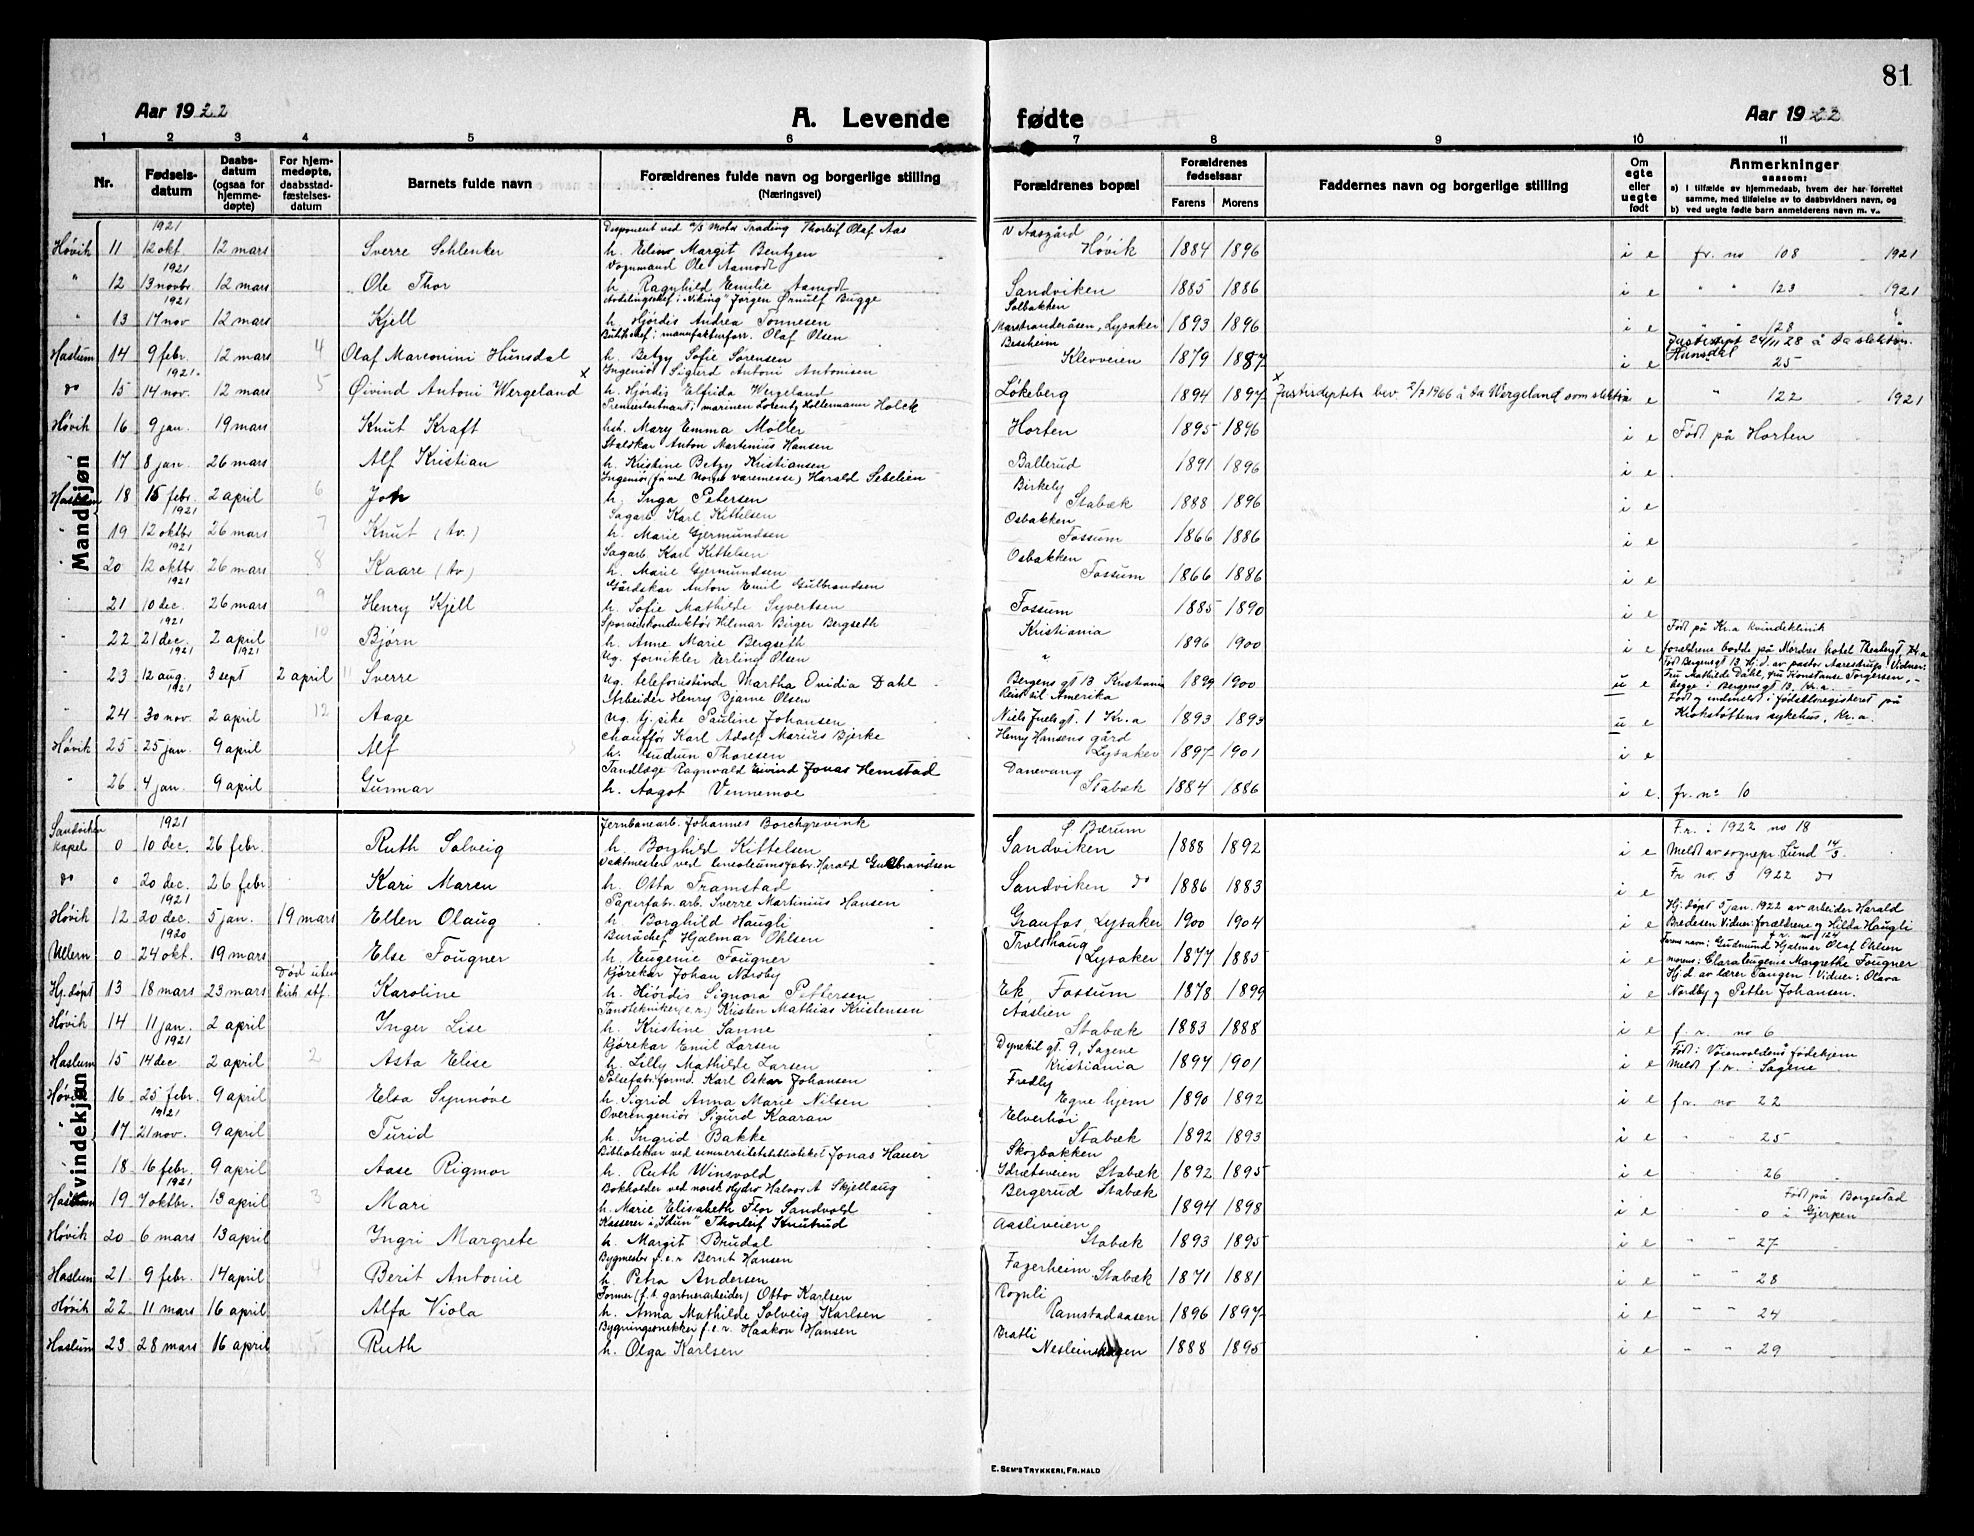 81
Aar 1922 A. Levende fødte Aar 1922
1 2 3 4 5 6 7 8 9 10 11
Nr. Fødselsdatum Daabsdatum (ogsaa for hjemmedøpte) For hjemmedøpte, daabsstadfæstelsesdatum Barnets fulde navn Forældrenes fulde navn og borgerlige stilling (Næringsvei) Forældrenes bopæl Forældrenes fødselsaar Farens Morens Faddernes navn og borgerlige stilling Om egte eller uegte født Anmerkninger saasom: a) i tilfælde av hjemmedaab, hvem der har forrettet samme, med tilføielse av to daabsvidners navn, og b) ved uegte fødte barn anmelderens navn m. v.
Mandkjøn
1921 Disponent ved a/s Motor Trading Thorleif Olaf Aas v Aasgård
Høvik 11 12 okt. 12 mars Sverre Schlenker h. Elina Margit Bentzen Høvik 1884 1896 i e fr. no 108 1921
1921 Vognmand Ole Aamodt
" 12 13 novbr. 12 mars Ole Thor h. Ragnhild Emilie Aamodt Sandviken 1885 1886 i e " " 123 1921
1921 Avdelingschef i "Viking" Jørgen Ørnulf Bugge Solbakken
" 13 17 nov 12 mars Kjell h. Hjørdis Andrea Tønnesen Marstranderåsen, Lysaker 1893 1896 i e " " 128 "
Butikchef i manufakturforr. Olaf Olsen Bescheim Justisdept 24/11 28 å ta slektsn. Hunsdal
Haslum 14 9 febr. 12 mars 4 Olaf Marconini Hunsdal h. Betzy Sofie Sørensen Klevveien 1879 1887 i e 25
1921. Ingeniør Sigurd Antoni Antonisen
do 15 14 nov. 12 mars 5 Øivind Antoni Wergeland x h. Hjørdis Elfrida Wergeland Løkeberg 1894 1897 x Justisdeptets bev. 2/7 1966 å ta Wergeland som slektsn. e " 122 1921
Premierløitnant i marinen Lorentz Hollermann Holck
Høvik 16 9 jan. 19 mars Knut Kraft hst. Mary Emma Møller Horten 1895 1896 i e Født på Horten
Staldkar Anton Martinius Hansen
" 17 8 jan. 26 mars Alf Kristian h. Kristine Betzy Kristiansen Ballerud 1891 1896 i e
Ingeniør (få ved Norges varemesse) Harald Sebelien Birkely
Haslum 18 15 febr. 2 april 6 Joh h. Inga Petersen Stabæk 1888 1896 i e
1921 Sagarb. Karl Kittelsen Osbakken
" 19 12 oktbr 26 mars 7 Knut (tv.) h. Marie Gjermundsen Fossum 1866 1886 i e
1921 Sagarb. Karl Kittelsen Osbakken
" 20 12 oktbr. 26 mars 8 Kaare (tv) h. Marie Gjermundsen Fossum 1866 1886 i e
1921 Gårdskar Anton Emil Gulbrandsen
" 21 10 dec. 26 mars 9 Henry Kjell h. Sofie Mathilde Syvertsen Fossum 1885 1890 i e
1921 Sporveiskonduktør Hilmar Birger Bergseth Kristiania Født på Kr.a kvindeklinik
" 22 21 dec. 2 april 10 Bjørn h. Anne Marie Bergseth " 1896 1900 i e forældrene bodde på Nordres hotel Thenbergt, Kr.a
1921 1921 Ug. fornikler Erling Olsen Født Bergensgt 13 Hj.d. av pastor Aarestrup. Vidner:
" 23 12 aug. 3 sept 2 april 11 Sverre Ug. telefonistinde Martha Ovidia Dahl Bergens gt 13 Kristiania 1899 1900 u e Fru Mathilde Dahl, fru Konstanse Torgersen, begge i Bergensgt 13, Kr.a.
1921 Arbeider Henry Bjarne Olsen Reist til Amerika Født og indmeldt i fødselsregisteret på
" 24 30 nov. 2 april 12 Aage Ug. tj.pike Pauline Johansen Niels Juels gt. 1 Kr.a 1893 1893 u e Krohstøttens sykehus, Kr.a.
Chauffør Karl Adolf Marius Bjerke Henry Hansens gård
Høvik 25 25 jan. 9 april Alf h. Gudrun Thoresen Lysaker 1897 1901 i e
Tandlæge Ragnvald Eivind Jonas Hemstad Danevang
" 26 4 jan. 9 april Gunnar h. Aagot Vennemoe Stabæk 1884 1886 i e. fr. no 10
Kvindekjøn
1921 Jernbanearb. Johannes Borchgrevink Ø Bærum F.r. i 1922 no 18
Sandviken kapel 0 10 dec. 26 febr. Ruth Solveig h. Borghild Kittelsen Sandviken 1888 1892 i e Meldt av sognepr. Lund 14/3.
Vektmester ved linoleumsfabr. Harald Gulbrandsen Fr no. 3 1922 do
do 0 20 dec. 26 febr. Kari Maren h. Otta Framstad Sandviken do 1886 1883 i e
1921 Papirfabr.arb. Sverre Martinius Hansen Hj.døpt 5 jan. 1922 av arbeider Harald
Høvik 12 20 dec. 5 jan. 19 mars Ellen Olaug h. Borghild Haugli Granfos, Lysaker 1900 1904 i e Bredesen Vidner: forældrene og Hilda Haugli
1920 Buråchef Hjalmar Ohlsen Troldhaug f.r. no 124 Farens navn: Gudmund Hjalmar Olaf Ohlsen
Ullern 0 24 okt. 19 mars Else Fougner h. Eugenie Fougner Lysaker 1877 1885 i e morens: Clara Eugenie Margrethe Fougner
Død uten kirk. stf. Kjørekar Johan Nordby Hj.d av lærer Tangen Vidner: Olava
Hj.døpt 13 18 mars 23 mars Karoline h. Hjørdis Signora Pettersen Ek, Fossum 1878 1899 i e Nordby og Petter Johansen.
Tandtekniker (e.r.) Kristen Mathias Kristensen Aaslien
Høvik 14 11 jan. 2 april Inger Lise h. Kristine Sanne Stabæk 1883 1888 i e f.r. no 6
1921 Kjørekar Emil Larsen Dynekil gt. 9, Sagene Født i Voienvoldens fødehjem
Haslum 15 14 dec 2 april 2 Asta Elise h. Lilly Mathilde Larsen Kristiania 1894 1901 i e Meldt f.r. i Sagene
Pølsefabr.formd. Karl Oskar Johansen Fredly
Høvik 16 25 febr. 9 april Elsa Synnøve h. Sigrid Anna Marie Nilsen Egne hjem 1890 1892 i e fr. no 22
1921 Overingeniør Sigurd Kaaran Elverhøi
" 17 21 nov. 9 april Turid h. Ingrid Bakke Stabæk 1892 1893 i e " " 25
Bibliotekar ved universitetsbiblioteket Jonas Hauer Skogbakken
" 18 16 febr. 9 april Aase Rigmor h. Ruth Winsvold Idrætsveien Stabæk 1892 1895 i e " " 26
1921 Bokholder ved norsk Hydro Halvor A Skjellaug Bergerud Stabæk Født på Borgestad
Haslum 19 7 oktbr. 13 april 3 Mari h. Marie Elisabeth Flor Sandvold 1894 1898 i e " " 0 i Gjerpen
Kasserer i "Idun" Thorleif Knutrud Aasliveien
Høvik 20 6 mars 13 april Ingri Margrete h. Margit Brudal Stabæk 1893 1895 i e " " 27
Bygmester f.e.r Bernt Hansen
Haslum 21 9 febr. 14 april 4 Berit Antonie h. Petra Andersen Fagerheim Stabæk 1871 1881 i e " " 28
Former (f.t. gartnerarbeider) Otto Karlsen Rognli
Høvik 22 11 mars 16 april Alfa Viola h. Anna Mathilde Solveig Karlsen Ramstadaasen 1896 1897 i e " " 24
Bygningssnekker f.e.r. Haakon Hansen Bratli
Haslum 23 28 mars 16 april 5 Ruth h. Olga Karlsen 1888 1895 i e " " 29
E. SEM'S TRYKKERI, FR.HALD